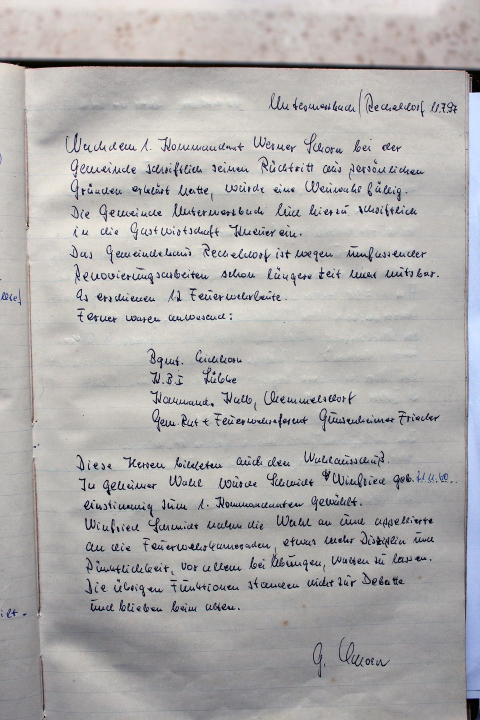 Untermerzbach/Recheldorf 11.7.97
Nachdem 1. Kommandant Werner Schorn bei der
Gemeinde schriftlich seinen Rücktritt aus persönlichen
Gründen erklärt hatte, wurde eine Neuwahl fällig.
Die Gemeinde Untermerzbach lud hierzu schriftlich
in die Gastwirtschaft ein.
Das Gemeindehaus Recheldorf ist wegen umfassender
Renovierungsarbeiten schon längere Zeit nicht nutzbar.
Es erschienen 12 Feuerwehrleute.
Ferner waren anwesend:
Bgmt. Eichhorn
K.B.I Lübke
Kommand. Hallo, Memmelsdorf
Gem.Rat + Feuerwehrreferent Günsenheimer Frieder
Diese Herren bildeten auch den Wahlausschuß.
In geheimer Wahl wurde Schmidt Winfried geb.
einstimmig zum 1. Kommandanten gewählt.
Winfried Schmidt nahm die Wahl an und appellierte
an die Feuerwehrkameraden, etwas mehr Disziplin und
Pünktlichkeit, vor allem bei Übungen, walten zu lassen.
Die übrigen Funktionen standen nicht zur Debatte
und blieben beim alten.
G. Schorn